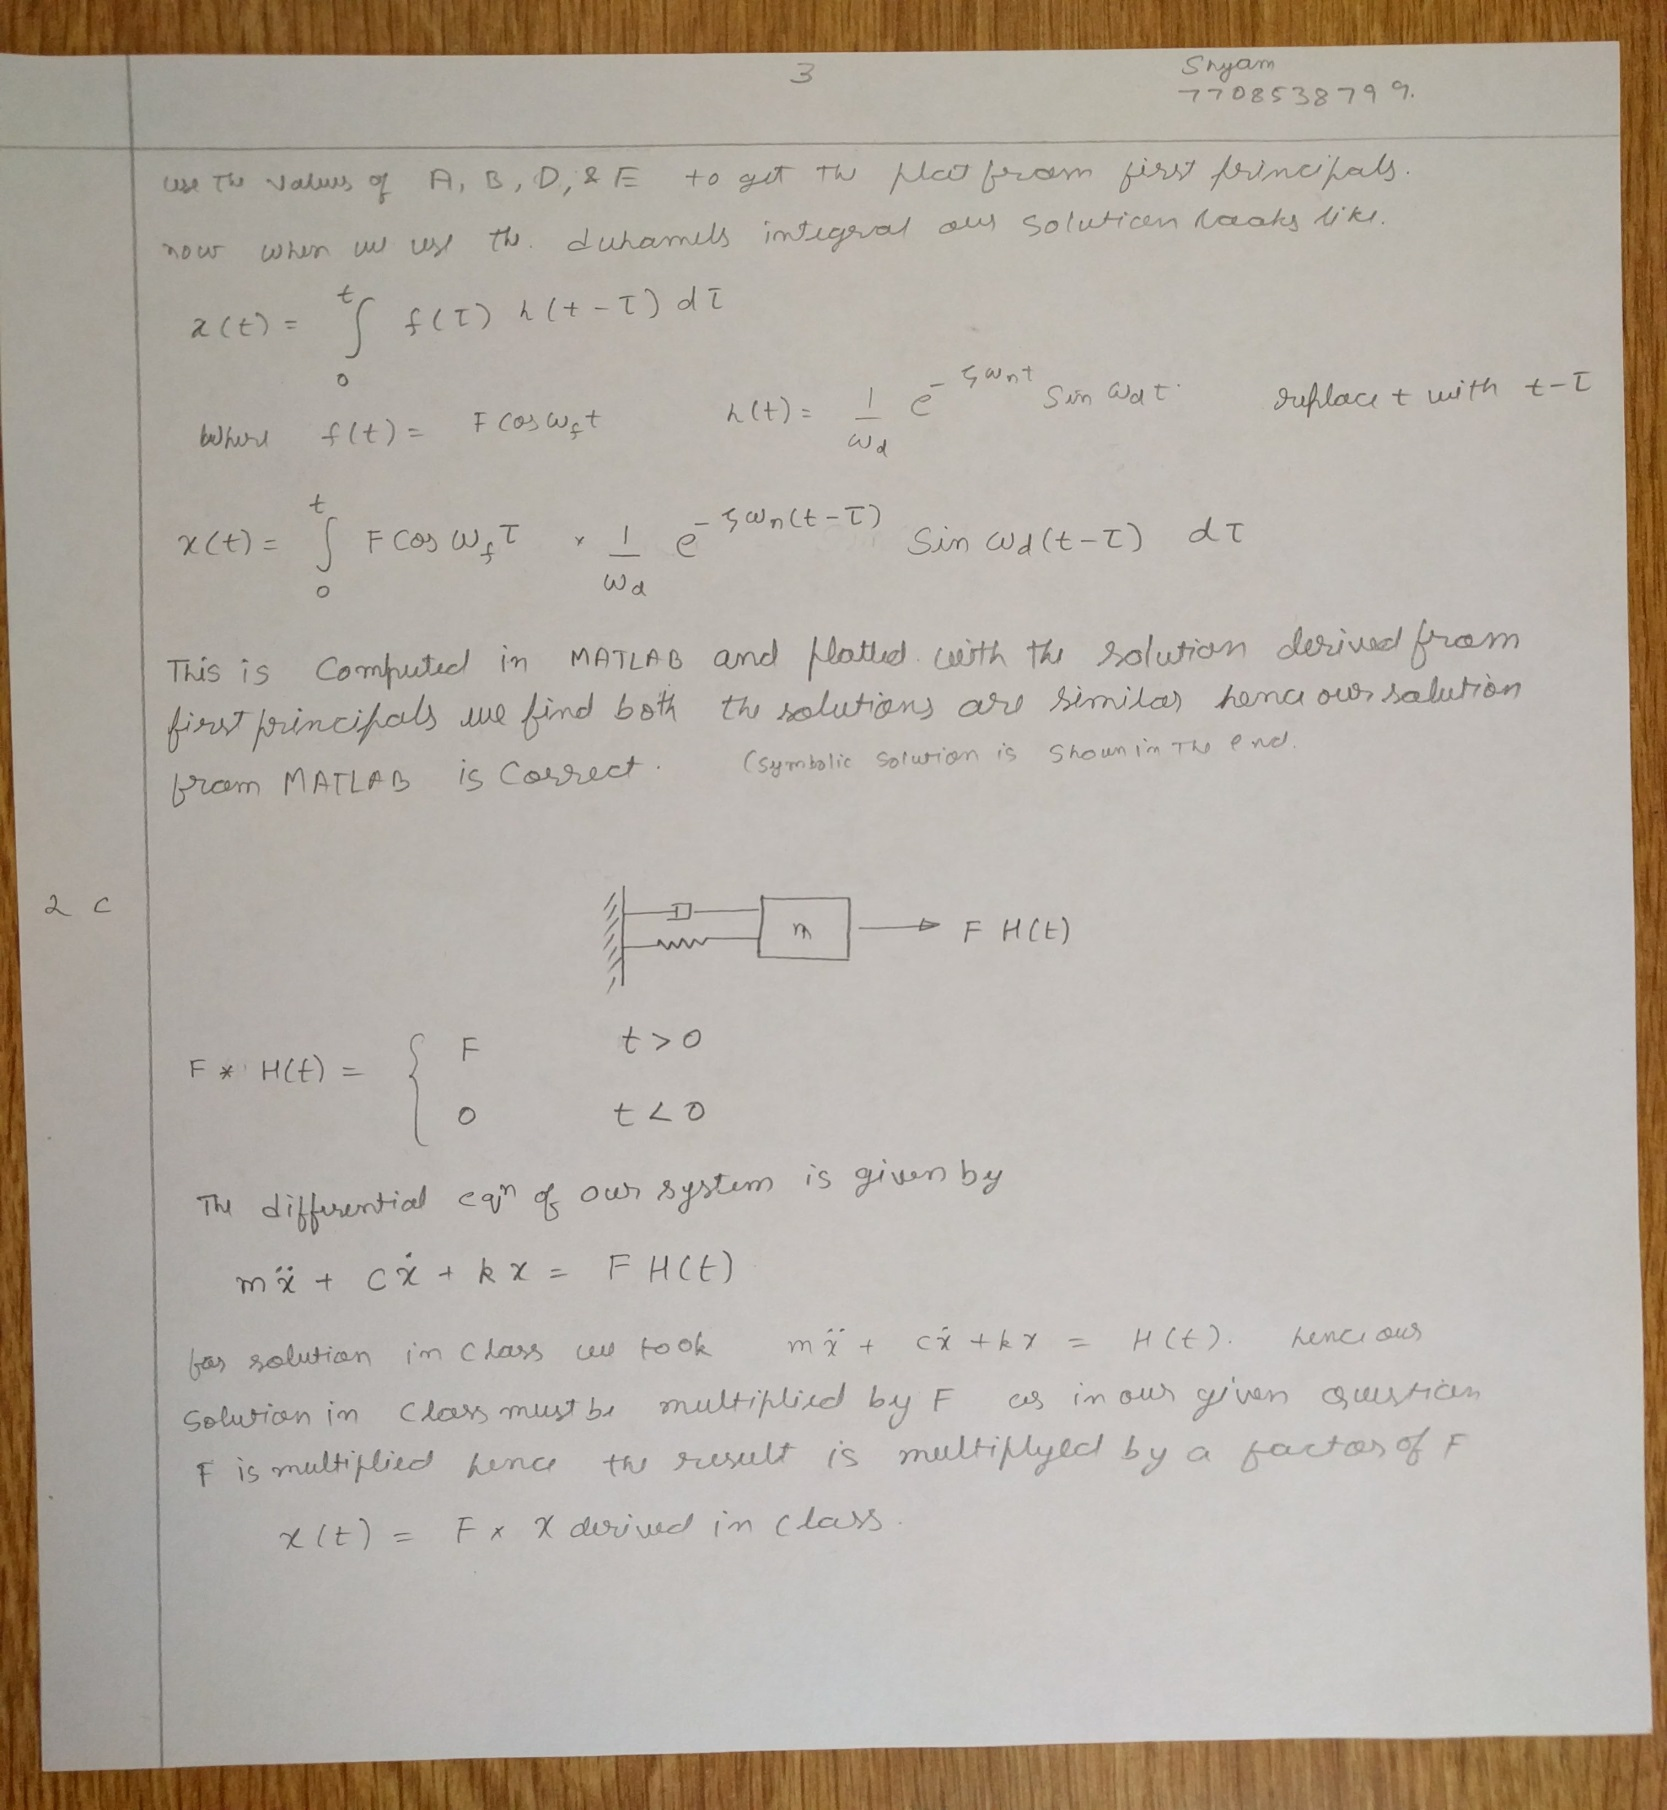 3
Shyam
7708538799.
use The values of A, B, D, & E to get the plot from first principals.
now when we use the. duhamels integral our solution looks like.
x(t) = ∫₀ᵗ f(τ) h(t-τ) dτ
where f(t) = F cos ω_f t    h(t) = 1/ω_d e^(-ζω_n t) Sin ω_d t    replace t with t-τ
x(t) = ∫₀ᵗ F cos ω_f τ × 1/ω_d e^(-ζω_n(t-τ)) Sin ω_d(t-τ) dτ
This is Computed in MATLAB and plotted with the solution derived from
first principals we find both the solutions are similar hence our solution
from MATLAB is Correct. (symbolic solution is shown in The end.
2 c
m → F H(t)
F * H(t) = { F    t > 0
0    t < 0
The differential eqⁿ of our system is given by
mẍ + cẋ + kx = F H(t)
for solution in class we took mẍ + cẋ + kx = H(t). hence our
Solution in Class must be multiplied by F as in our given question
F is multiplied hence the result is multiplyed by a factor of F
x(t) = F × X derived in class.